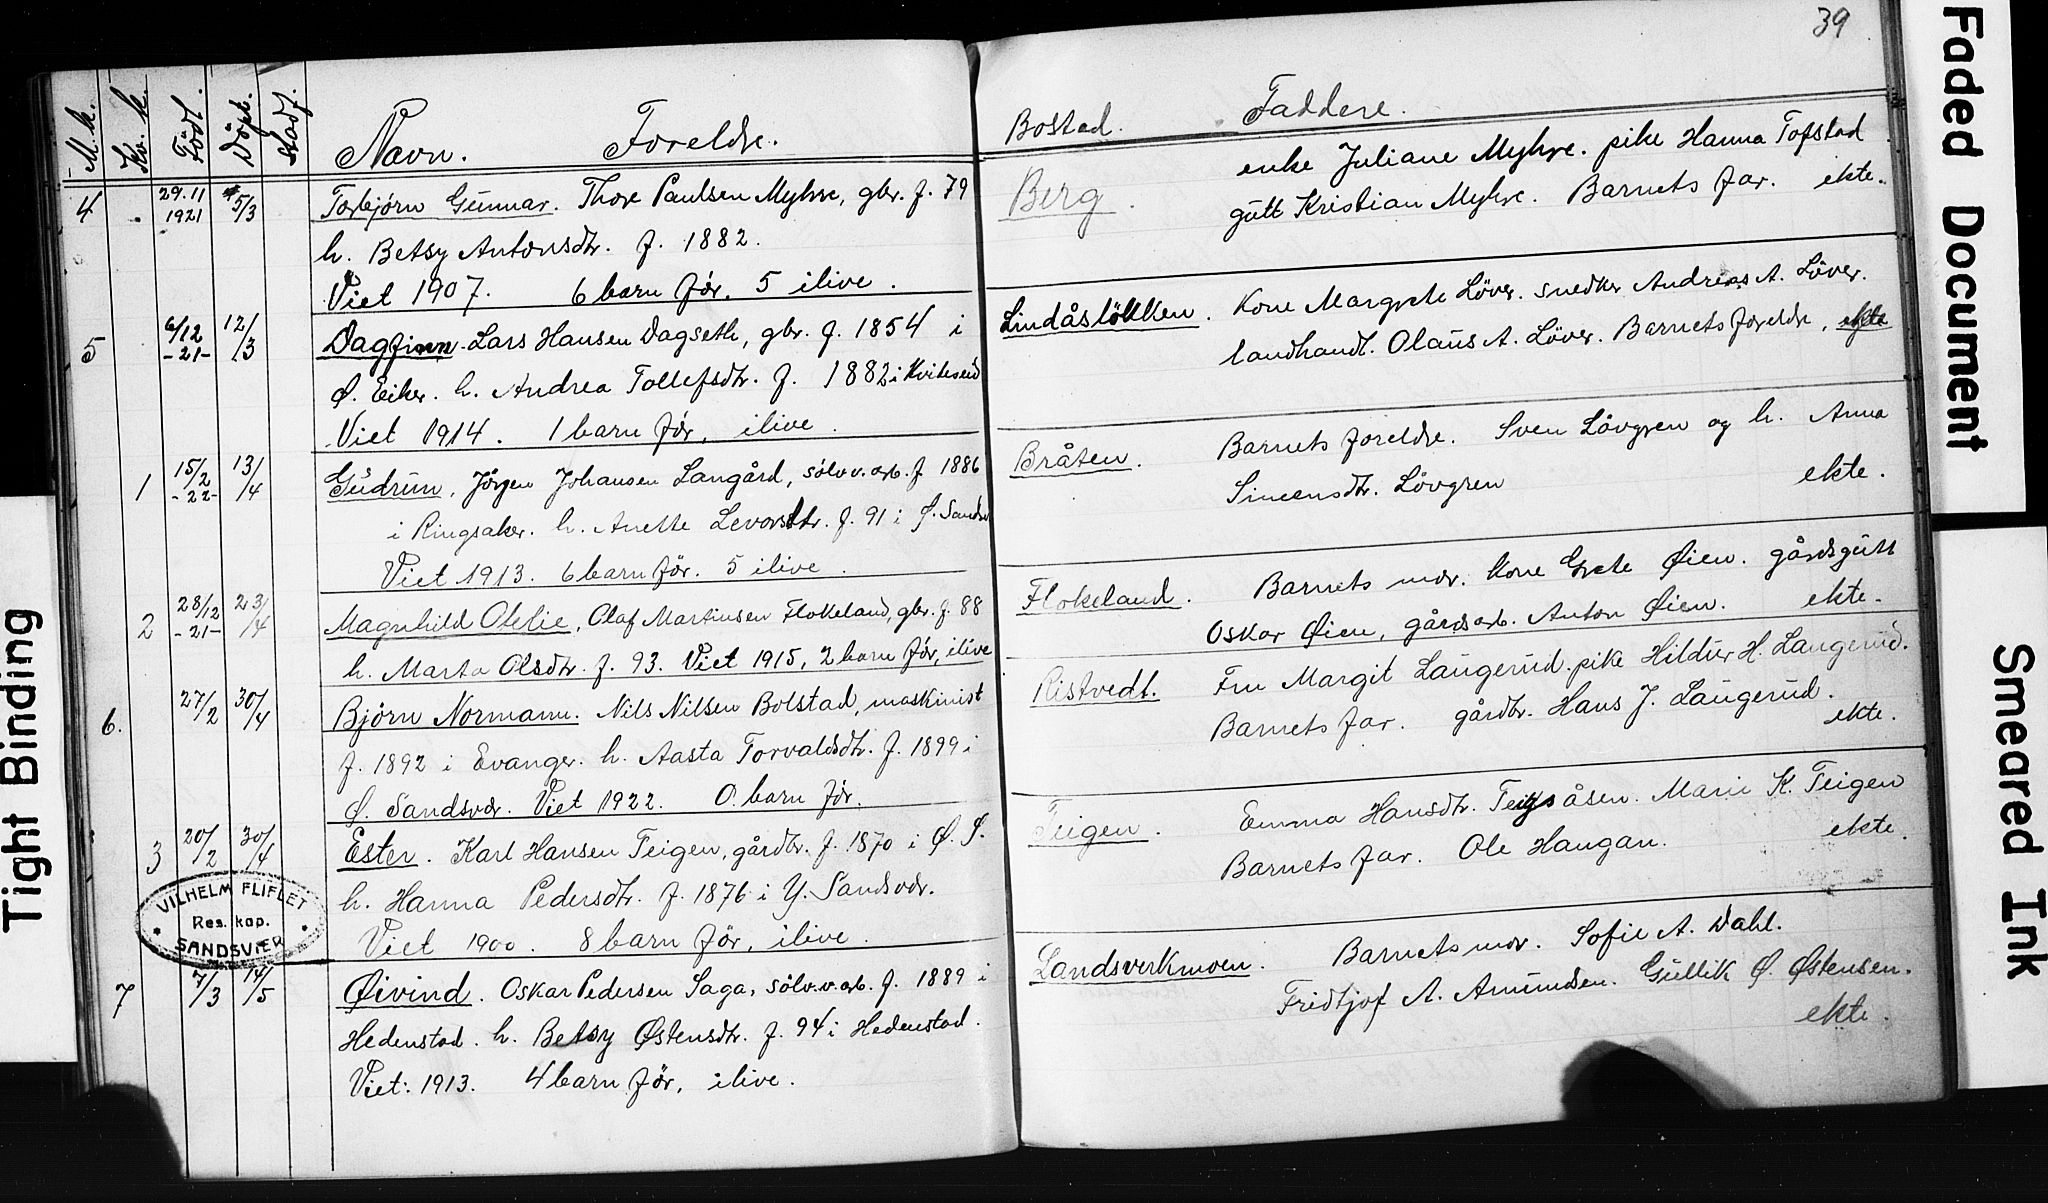 39
M. k. Kv. k. Född. Döpt. stadf. Navn. Foreldr. Bosted. Faddere.
4 29.11 1921 5/3 Torbjørn Gunnar. Thore Paulsen Myhre, gbr. f. 79
h. Betsy Antonsdtr. f. 1882.
Viet 1907. 6 barn før. 5 ilive.
Berg. enke Juliane Myhre. pike Hanna Tofstad
gutt Kristian Myhre. Barnets far. ekte.
5 6/12 -21- 12/3 Dagfinn. Lars Hansen Dagseth, gbr. f. 1854 i
Ø. Eiker. h. Andrea Tollefsdtr. f. 1882 i Kviteseid
Viet 1914. 1 barn før, ilive.
Lindåsløkken. Kone Margrete Löver. snedker Andreas A. Löver.
landhandl. Olaus A. Löver. Barnets foreldr, ekte
1 15/2 -22- 13/4 Gudrun, Jörgen Johansen Langård, sölvv. arb. f 1886
i Ringsaker. h. Anette Levorsdtr. f. 91 i Ø. Sandsv
Viet 1913. 6 barn før. 5 ilive.
Bråten. Barnets foreldre. Sven Lövgren og h. Anna
Simensdtr. Lövgren ekte.
2 28/12 -21- 23/4 Magnhild Otelie, Olaf Martinsen Flokeland, gbr. f. 88
h. Marta Olsdtr. f. 93. Viet 1915, 2 barn før, ilive
Flokeland. Barnets mor. Kone Grete Øien. gårdsgutt
Oskar Øien, gårdsarb. Anton Øien. ekte.
6. 27/2 30/4 Bjørn Normann. Nils Nilsen Bolstad, maskinist
f. 1892 i Evanger. h. Aasta Torvaldsdtr. f. 1899 i
Ø. Sandsvær. Viet 1922. 0 barn før.
Ristvedt. Fru Margit Laugerud. pike Hildur H. Laugerud.
Barnets far. gårdbr. Hans J. Laugerud. ekte.
3 20/2 30/4 Ester. Karl Hansen Teigen, gårdbr. f. 1870 i Ø. S.
h. Hanna Pedersdtr. f. 1876 i Y. Sandsvær.
Viet 1900. 8 barn før, ilive.
Teigen. Emma Hansdtr. Teigsåsen. Marie K. Teigen
Barnets far. Ole Haugan. ekte.
VILHELM FLIFLET
Res. kap.
SANDSVÆR
7 7/3 14/5 Øivind. Oskar Pedersen Saga, sölv.v.arb. f. 1889 i
Hedenstad. h. Betsy Østensdtr. f. 94 i Hedenstad.
Viet: 1913. 4 barn før, ilive.
Landsverkmoen. Barnets mor. Sofie A. Dahl.
Fridtjof A. Amundsen. Gullik Ø. Østensen.
ekte.
Tight Binding
Faded Document
Smeared Ink